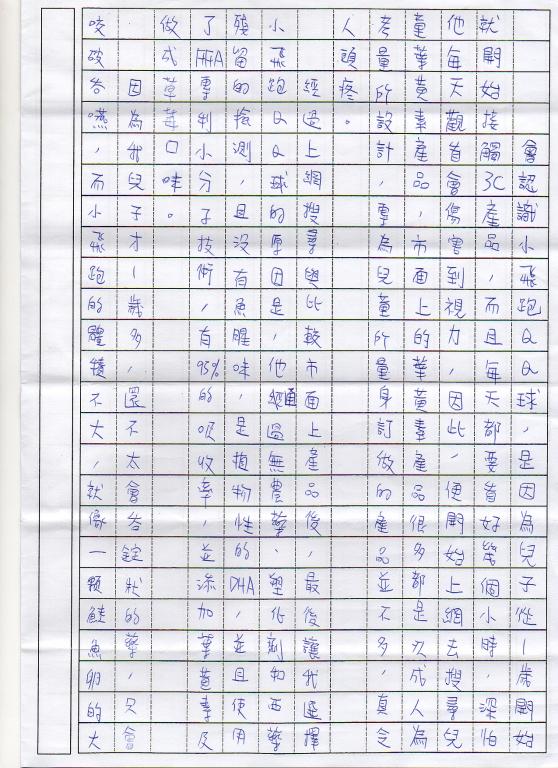 會認識小飛跑QQ球,是因為兒子從1歲開始
就開始接觸3C產品,而且每天都要看好幾個小時,深怕
他每天觀看會傷害到視力,因此,便開始上網去搜尋兒
童葉黃素產品,市面上的葉黃素產品很多都是以成人為
考量所設計,專為兒童所量身訂做的產品並不多,真令
人頭疼。
經過上網搜尋與比較市面上產品後,最後讓我選擇
小飛跑QQ球的原因是,他經過無農藥、塑化劑和西藥
殘留的檢測,且沒有魚腥味,是植物性的DHA,並且使用
了FHA專利小分子技術,有95%的吸收率,並添加葉黃素及
做成草莓口味。
因為我兒子才1歲多,還不太會吞錠狀的藥,只會
咬破吞嚥,而小飛跑的體積不大,就像一顆鮭魚卵的大